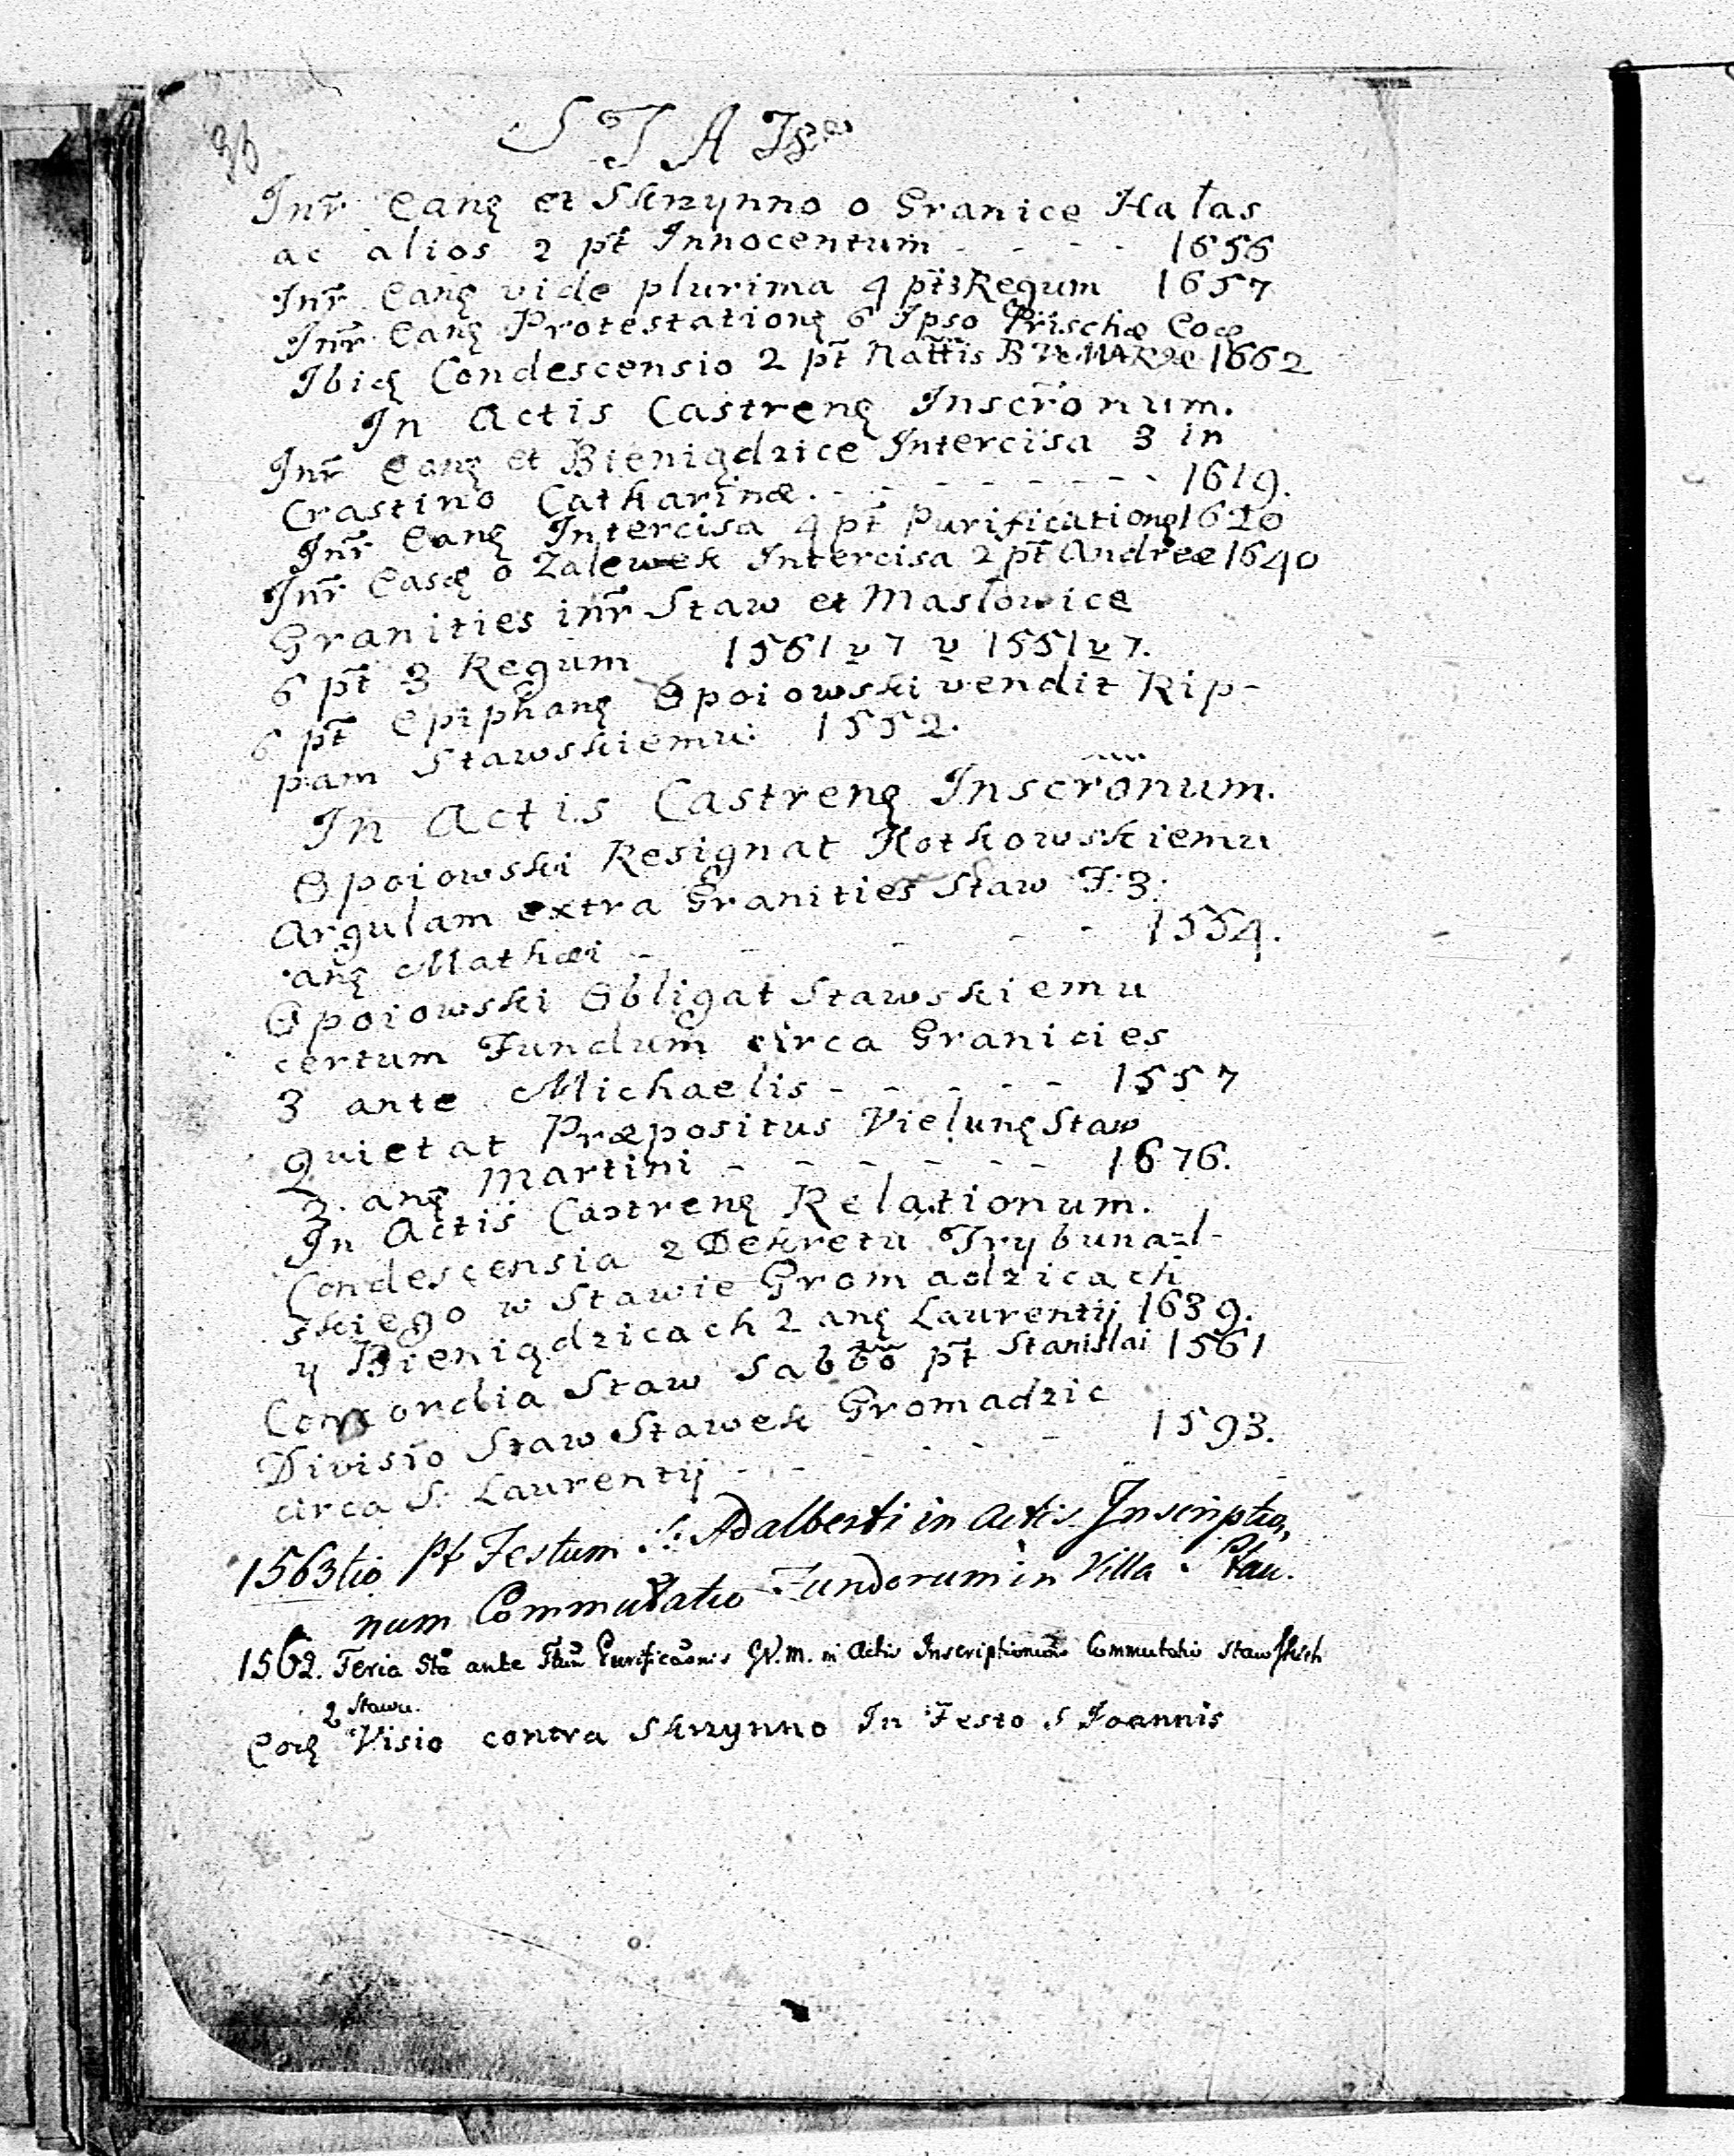 36
S T A
Inr̃ Eanę et Skrzynno o Granice Hałas
ac alios 2 pt̃ Innocentum - - - - 1656
Inr̃ Eanę vide plurima 4 pt̃ 3 Regum 1657
Inr̃ Eanę Protestationę 6 Ipso Prischæ Eoę
Ibię Condescensio 2 pt̃ Nattis B V MARIæ 1662
In Actis Castrenę Inscrõnum.
Inr̃ Eanę et Bieniądzice Intercisa 3 in
Crastino Catharinæ. - - - - - - - - 1619.
Inr̃ Eanę Intercisa 4 pt̃ Purificationę 1620
Inr̃ Easdę o Zalewek Intercisa 2 pt̃ Andreæ 1640
Granities inr̃ Staw et Masłowice
6 pt̃ 3 Regum 1561 v 7 v 1551 v 7.
6 pt̃ Epiphanę Opoiowski vendit Rip-
pam Stawskiemu: 1552.
In Actis Castrenę Inscrõnum.
Opoiowski Resignat Kotkowskiemu
Argulam extra Granities Staw F: 3:
anę Mathæi - - - - - 1554.
Opoiowski Obligat Stawskiemu
certum Fundum circa Granicies
3 ante Michaelis - - - - - 1557
Quietat Præpositus Vielunę Staw
3. anę Martini - - - - - - 1676.
In Actis Castrenę Relationum.
Condescensia z Dekretu Trybunal-
skiego w Stawie Gromadzicach
y Bieniądzicach 2 anę Laurentij 1639.
Concordia Staw Sabbo pt̃ Stanislai 1561
Divisio Staw Stawek Gromadzic
circa S: Laurentij - - - - - 1593.
1563tio pt Festum S: Adalberti in Actis Inscriptio-
num Commutatio Fundorum in Villa Stau.
1562. Feria 5ta ante Purificaõnis in Actis Inscriptionum Commutatio
2 Stawu.
Eodę Visio contra Skrzynno In Festo S Joannis